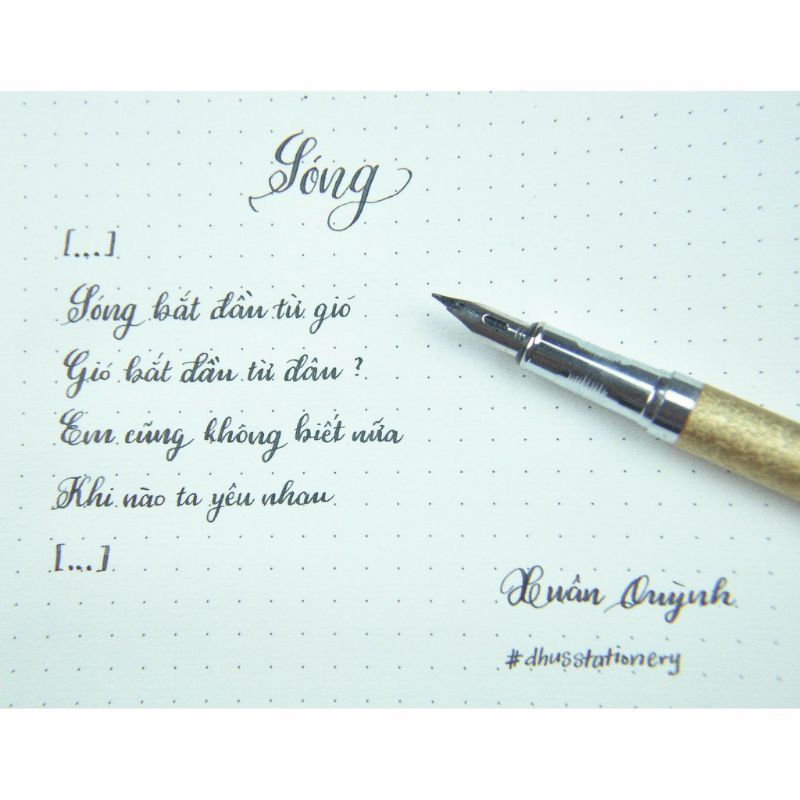 Sóng
[...]
Sóng bắt đầu từ gió
Gió bắt đầu từ đâu ?
Em cũng không biết nữa
Khi nào ta yêu nhau
[...]
Xuân Quỳnh
#dhusstationery